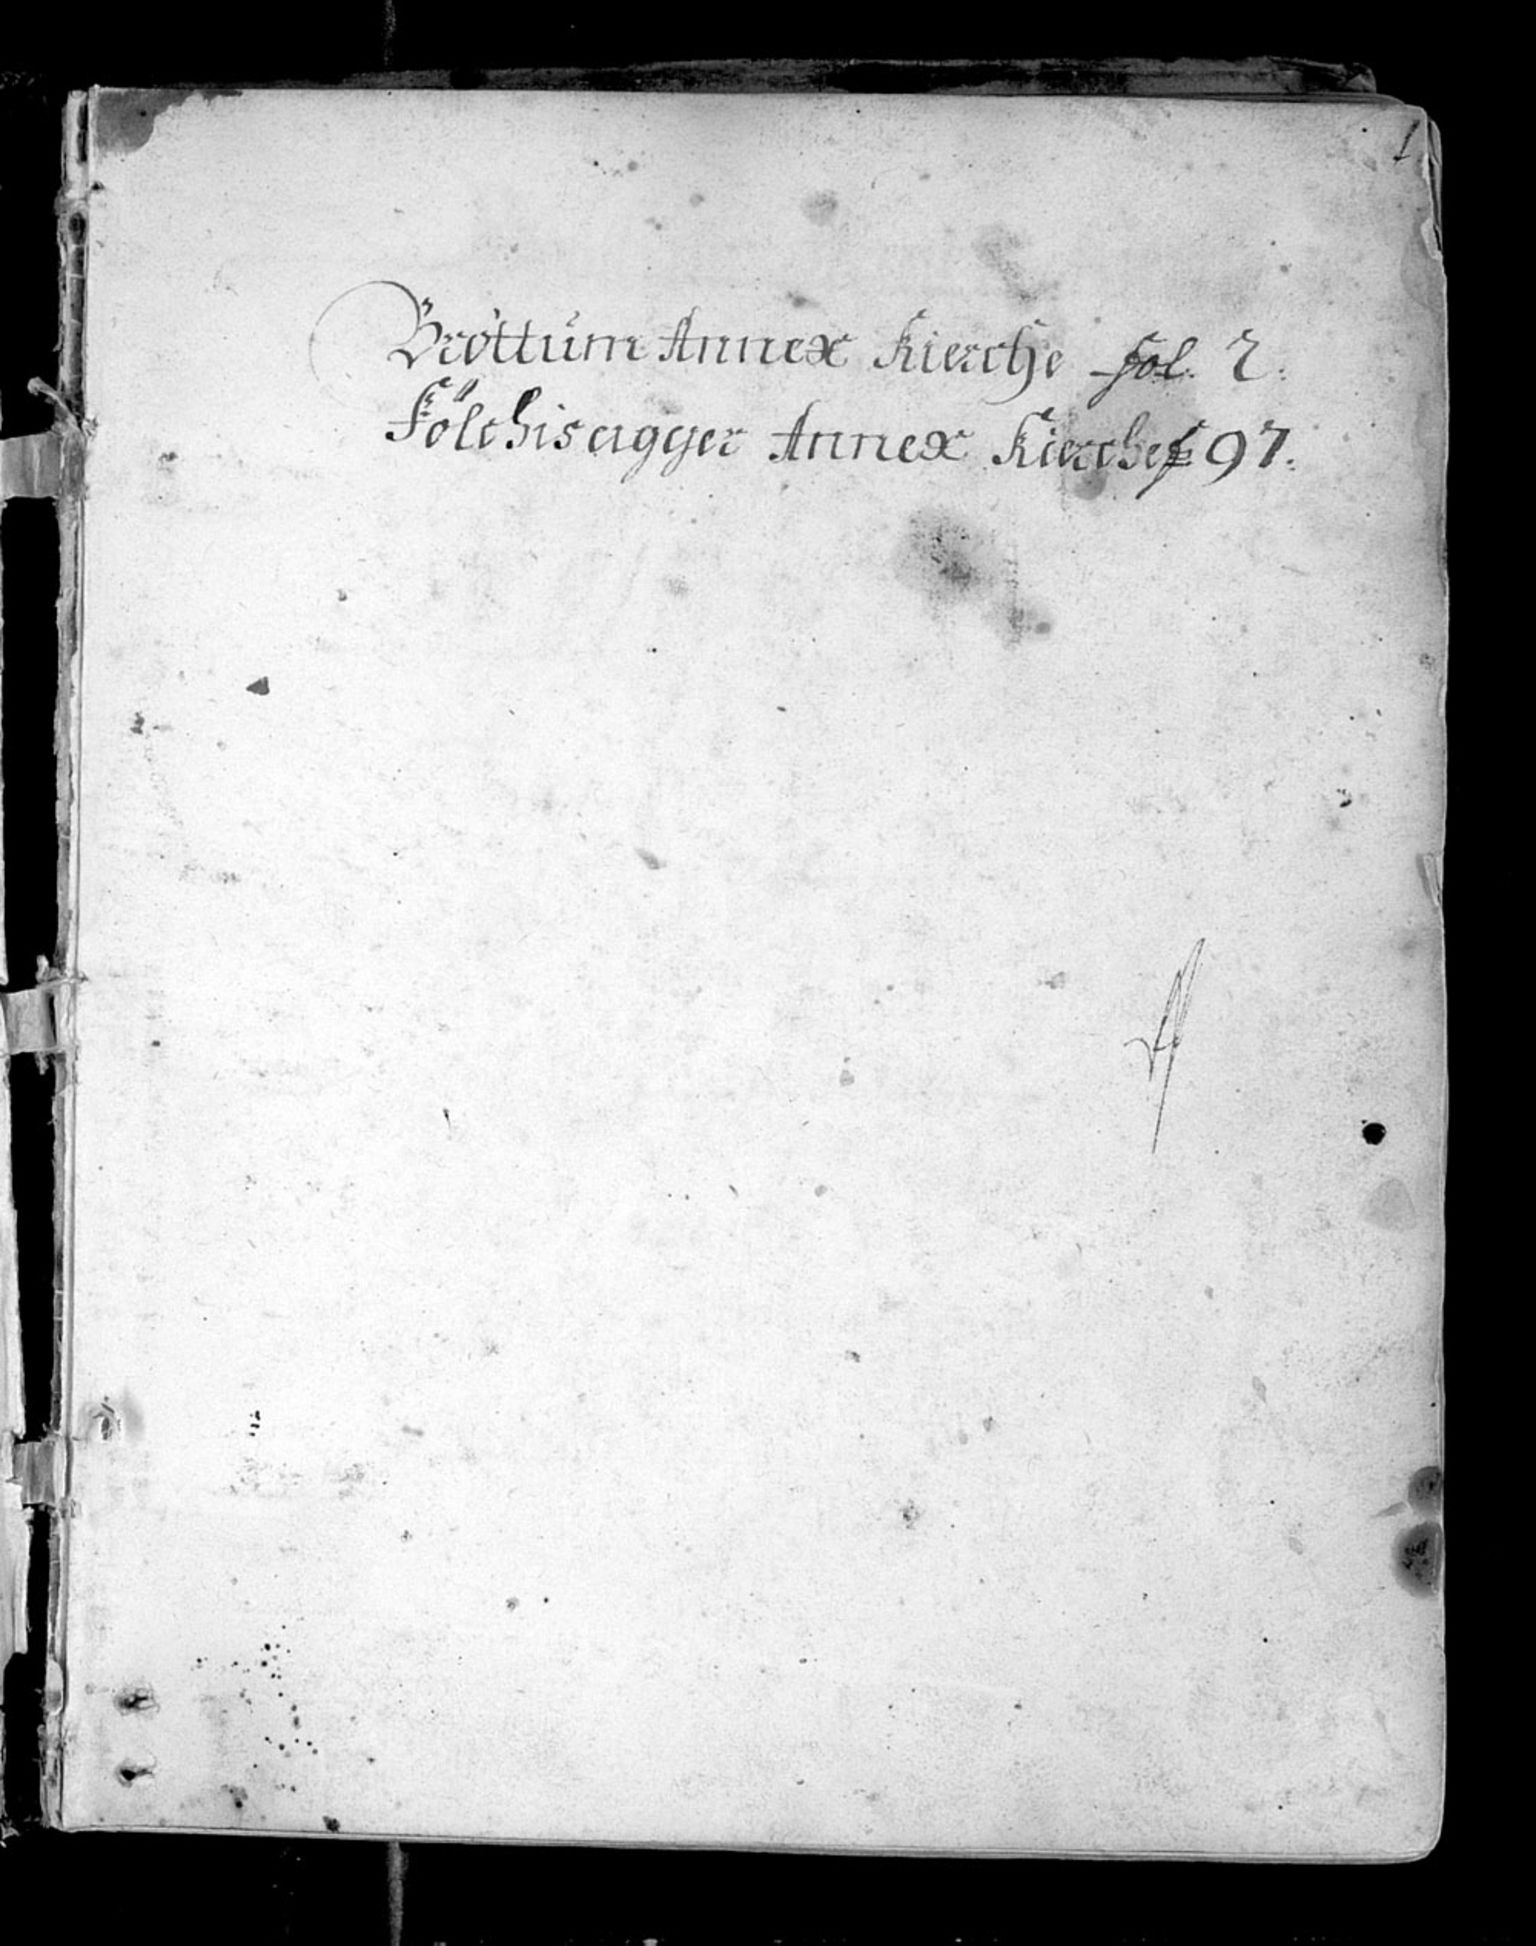 1
Bröttum Annex Kierche fol. 2.
Fölchisagger Annex Kierche f 97.